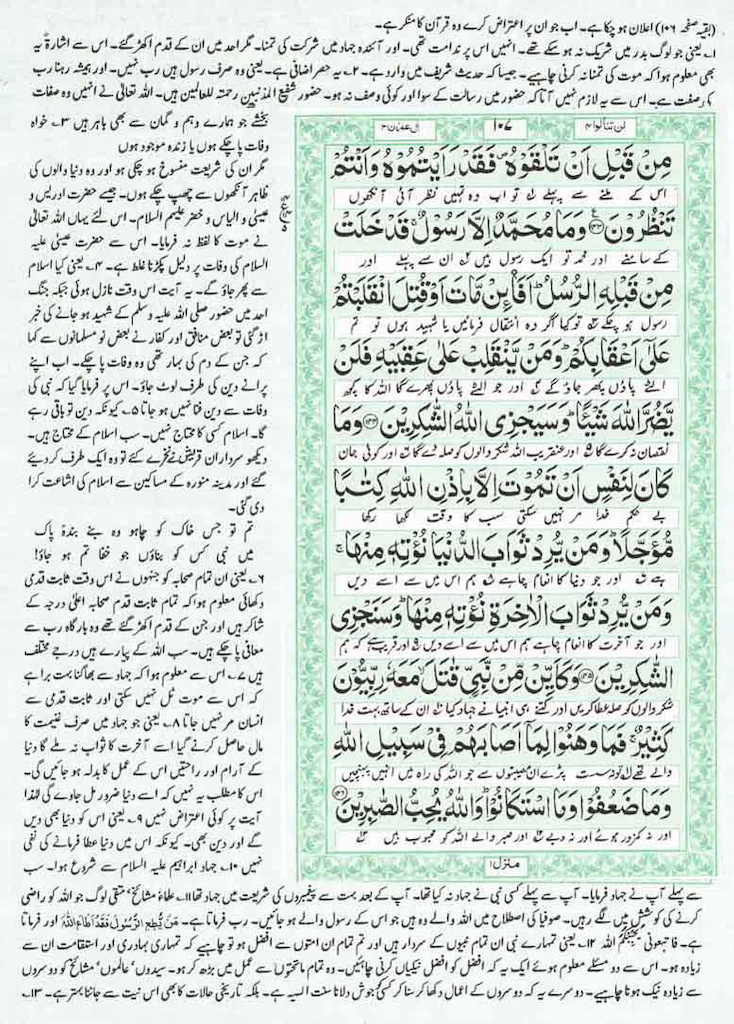 (بقیہ صفحہ ۱۰۶) اعلان ہو چکا ہے۔ اب جو ان پر اعتراض کرے وہ قرآن کا منکر ہے۔
۱۔ یعنی جو لوگ بدر میں شریک نہ ہو سکے تھے۔ انہیں اس پر ندامت تھی۔ اور آئندہ جہاد میں شرکت کی تمنا۔ مگر احد میں ان کے قدم اکھڑ گئے۔ اس سے اشارۃً یہ
بھی معلوم ہوا کہ موت کی تمنا نہ کرنی چاہیے۔ جیسا کہ حدیث شریف میں وارد ہے۔ ۲۔ یہ حصر اضافی ہے۔ یعنی وہ صرف رسول ہیں رب نہیں۔ اور ہمیشہ رہنا رب
کی صفت ہے۔ اس سے یہ لازم نہیں آتا کہ حضور میں رسالت کے سوا اور کوئی وصف نہ ہو۔ حضور شفیع المذنبین رحمتہ للعالمین ہیں۔ اللہ تعالیٰ نے انہیں وہ صفات
بخشے جو ہمارے وہم و گمان سے بھی باہر ہیں ۳۔ خواہ
وفات پا چکے ہوں یا زندہ موجود ہوں
مگر ان کی شریعت منسوخ ہو چکی ہو اور وہ دنیا والوں کی
ظاہر آنکھوں سے چھپ چکے ہوں۔ جیسے حضرت ادریس و
عیسیٰ و الیاس و خضر علیہم السلام۔ اس لئے یہاں اللہ تعالیٰ
نے موت کا لفظ نہ فرمایا۔ اس سے حضرت عیسیٰ علیہ
السلام کی وفات پر دلیل پکڑنا غلط ہے۔ ۴۔ یعنی کیا اسلام
سے پھر جاؤ گے۔ یہ آیت اس وقت نازل ہوئی جبکہ جنگ
احد میں حضور صلی اللہ علیہ وسلم کے شہید ہو جانے کی خبر
اڑ گئی تو بعض منافق اور کفار نے بعض نو مسلمانوں سے کہا
کہ جن کے دم کی بہار تھی وہ وفات پا چکے۔ اب اپنے
پرانے دین کی طرف لوٹ جاؤ۔ اس پر فرمایا گیا کہ نبی کی
وفات سے دین فنا نہیں ہو جاتا ۵۔ کیونکہ دین تو باقی رہے
گا۔ اسلام کسی کا محتاج نہیں۔ سب اسلام کے محتاج ہیں۔
دیکھو سرداران قریش نے نخرے کئے تو وہ ایک طرف کر دیئے
گئے اور مدینہ منورہ کے مساکین سے اسلام کی اشاعت کرا
دی گئی۔
تم تو جس خاک کو چاہو وہ بنے بندۂ پاک
میں نبی کس کو بناؤں جو خفا تم ہو جاؤ!
۶۔ یعنی ان تمام صحابہ کو جنہوں نے اس وقت ثابت قدمی
دکھائی معلوم ہوا کہ تمام ثابت قدم صحابہ اعلیٰ درجہ کے
شاکر ہیں اور جن کے قدم اکھڑ گئے تھے وہ بارگاہ رب سے
معافی پا چکے ہیں۔ سب اللہ کے پیارے ہیں درجے مختلف
ہیں ۷۔ اس سے معلوم ہوا کہ جہاد سے بھاگنا بہت برا ہے
کہ اس سے موت ٹل نہیں سکتی اور ثابت قدمی سے
انسان مر نہیں جاتا ۸۔ یعنی جو جہاد میں صرف غنیمت کا
مال حاصل کرنے گیا اسے آخرت کا ثواب نہ ملے گا دنیا
کے آرام اور راحتیں اس کے عمل کا بدلہ ہو جائیں گی۔
اس کا مطلب یہ نہیں کہ اسے دنیا ضرور مل جاوے گی لہٰذا
آیت پر کوئی اعتراض نہیں ۹۔ یعنی اس کو دنیا بھی دیں
گے اور دین بھی۔ کیونکہ اس میں دنیا عطا فرمانے کی نفی
نہیں ۱۰۔ جہاد ابراہیم علیہ السلام سے شروع ہوا۔ سب
لن تنالوا ۴ ۱۰۷ اٰل عمرٰن ۳
مِنْ قَبْلِ اَنْ تَلْقَوْهُ فَقَدْ رَاَيْتُمُوْهُ وَاَنْتُمْ
اس کے ملنے سے پہلے تو اب وہ تمہیں نظر آئی آنکھوں
تَنْظُرُوْنَ ۱۴۳ وَمَا مُحَمَّدٌ اِلَّا رَسُوْلٌ قَدْ خَلَتْ
کے سامنے اور محمد تو ایک رسول ہیں ان سے پہلے اور
مِنْ قَبْلِهِ الرُّسُلُ اَفَا۠ئِنْ مَّاتَ اَوْ قُتِلَ انْقَلَبْتُمْ
رسول ہو چکے تو کیا اگر وہ انتقال فرمائیں یا شہید ہوں تو تم
عَلٰٓى اَعْقَابِكُمْ وَمَنْ يَّنْقَلِبْ عَلٰى عَقِبَيْهِ فَلَنْ
الٹے پاؤں پھر جاؤ گے اور جو الٹے پاؤں پھرے گا اللہ کا کچھ
يَّضُرَّ اللّٰهَ شَيْئًا وَسَيَجْزِى اللّٰهُ الشّٰكِرِيْنَ ۱۴۴ وَمَا
نقصان نہ کرے گا اور عنقریب اللہ شکر والوں کو صلہ دے گا اور کوئی جان
كَانَ لِنَفْسٍ اَنْ تَمُوْتَ اِلَّا بِاِذْنِ اللّٰهِ كِتٰبًا
بے حکم خدا مر نہیں سکتی سب کا وقت لکھا رکھا
مُّؤَجَّلًا وَمَنْ يُّرِدْ ثَوَابَ الدُّنْيَا نُؤْتِهٖ مِنْهَا
ہے اور جو دنیا کا انعام چاہے ہم اس میں سے اسے دیں
وَمَنْ يُّرِدْ ثَوَابَ الْاٰخِرَةِ نُؤْتِهٖ مِنْهَا وَسَنَجْزِى
اور جو آخرت کا انعام چاہے ہم اس میں سے اسے دیں اور قریب ہے کہ ہم
الشّٰكِرِيْنَ ۱۴۵ وَكَاَيِّنْ مِّنْ نَّبِيٍّ قٰتَلَ مَعَهٗ رِبِّيُّوْنَ
شکر والوں کو صلہ عطا کریں اور کتنے ہی انبیا نے جہاد کیا ان کے ساتھ بہت خدا
كَثِيْرٌ فَمَا وَهَنُوْا لِمَآ اَصَابَهُمْ فِيْ سَبِيْلِ اللّٰهِ
والے تھے تو نہ سست پڑے ان مصیبتوں سے جو اللہ کی راہ میں انہیں پہنچیں
وَمَا ضَعُفُوْا وَمَا اسْتَكَانُوْا وَاللّٰهُ يُحِبُّ الصّٰبِرِيْنَ ۱۴۶
اور نہ کمزور ہوئے اور نہ دبے اور صبر والے اللہ کو محبوب ہیں
منزل ۱
سے پہلے آپ نے جہاد فرمایا۔ آپ سے پہلے کسی نبی نے جہاد نہ کیا تھا۔ آپ کے بعد بہت سے پیغمبروں کی شریعت میں جہاد تھا ۱۱۔ علماء مشائخ' متقی لوگ جو اللہ کو راضی
کرنے کی کوشش میں لگے رہیں۔ صوفیا کی اصطلاح میں اللہ والے وہ ہیں جو اس کے رسول والے ہو جائیں۔ رب فرماتا ہے۔ مَنْ يُّطِعِ الرَّسُوْلَ فَقَدْ اَطَاعَ اللهَ اور فرماتا
ہے۔ فاتبعونی یحببکم اللہ ۱۲۔ یعنی تمہارے نبی ان تمام نبیوں کے سردار ہیں اور تم تمام ان امتوں سے افضل ہو تو چاہیے کہ تمہاری بہادری اور استقامت ان سے
زیادہ ہو۔ اس سے دو مسئلے معلوم ہوئے ایک یہ کہ افضل کو افضل نیکیاں کرنی چاہئیں۔ وہ تمام ماتحتوں سے عمل میں بڑھ کر ہو۔ سیدوں' عالموں' مشائخ کو دوسروں
سے زیادہ نیک ہونا چاہیے۔ دوسرے یہ کہ دوسروں کے اعمال دکھا کر سنا کر کسی کو جوش دلانا سنت الٰہیہ ہے۔ بلکہ تاریخی حالات کا بھی اس نیت سے جاننا بہتر ہے۔ ۱۳۔